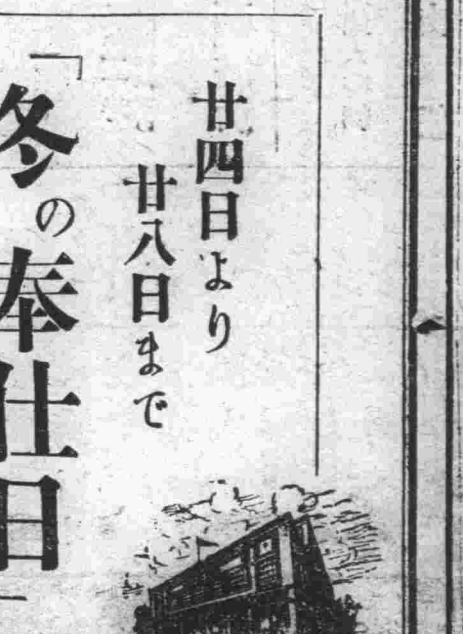 廿四日より
廿八日まで
「冬の奉仕日」